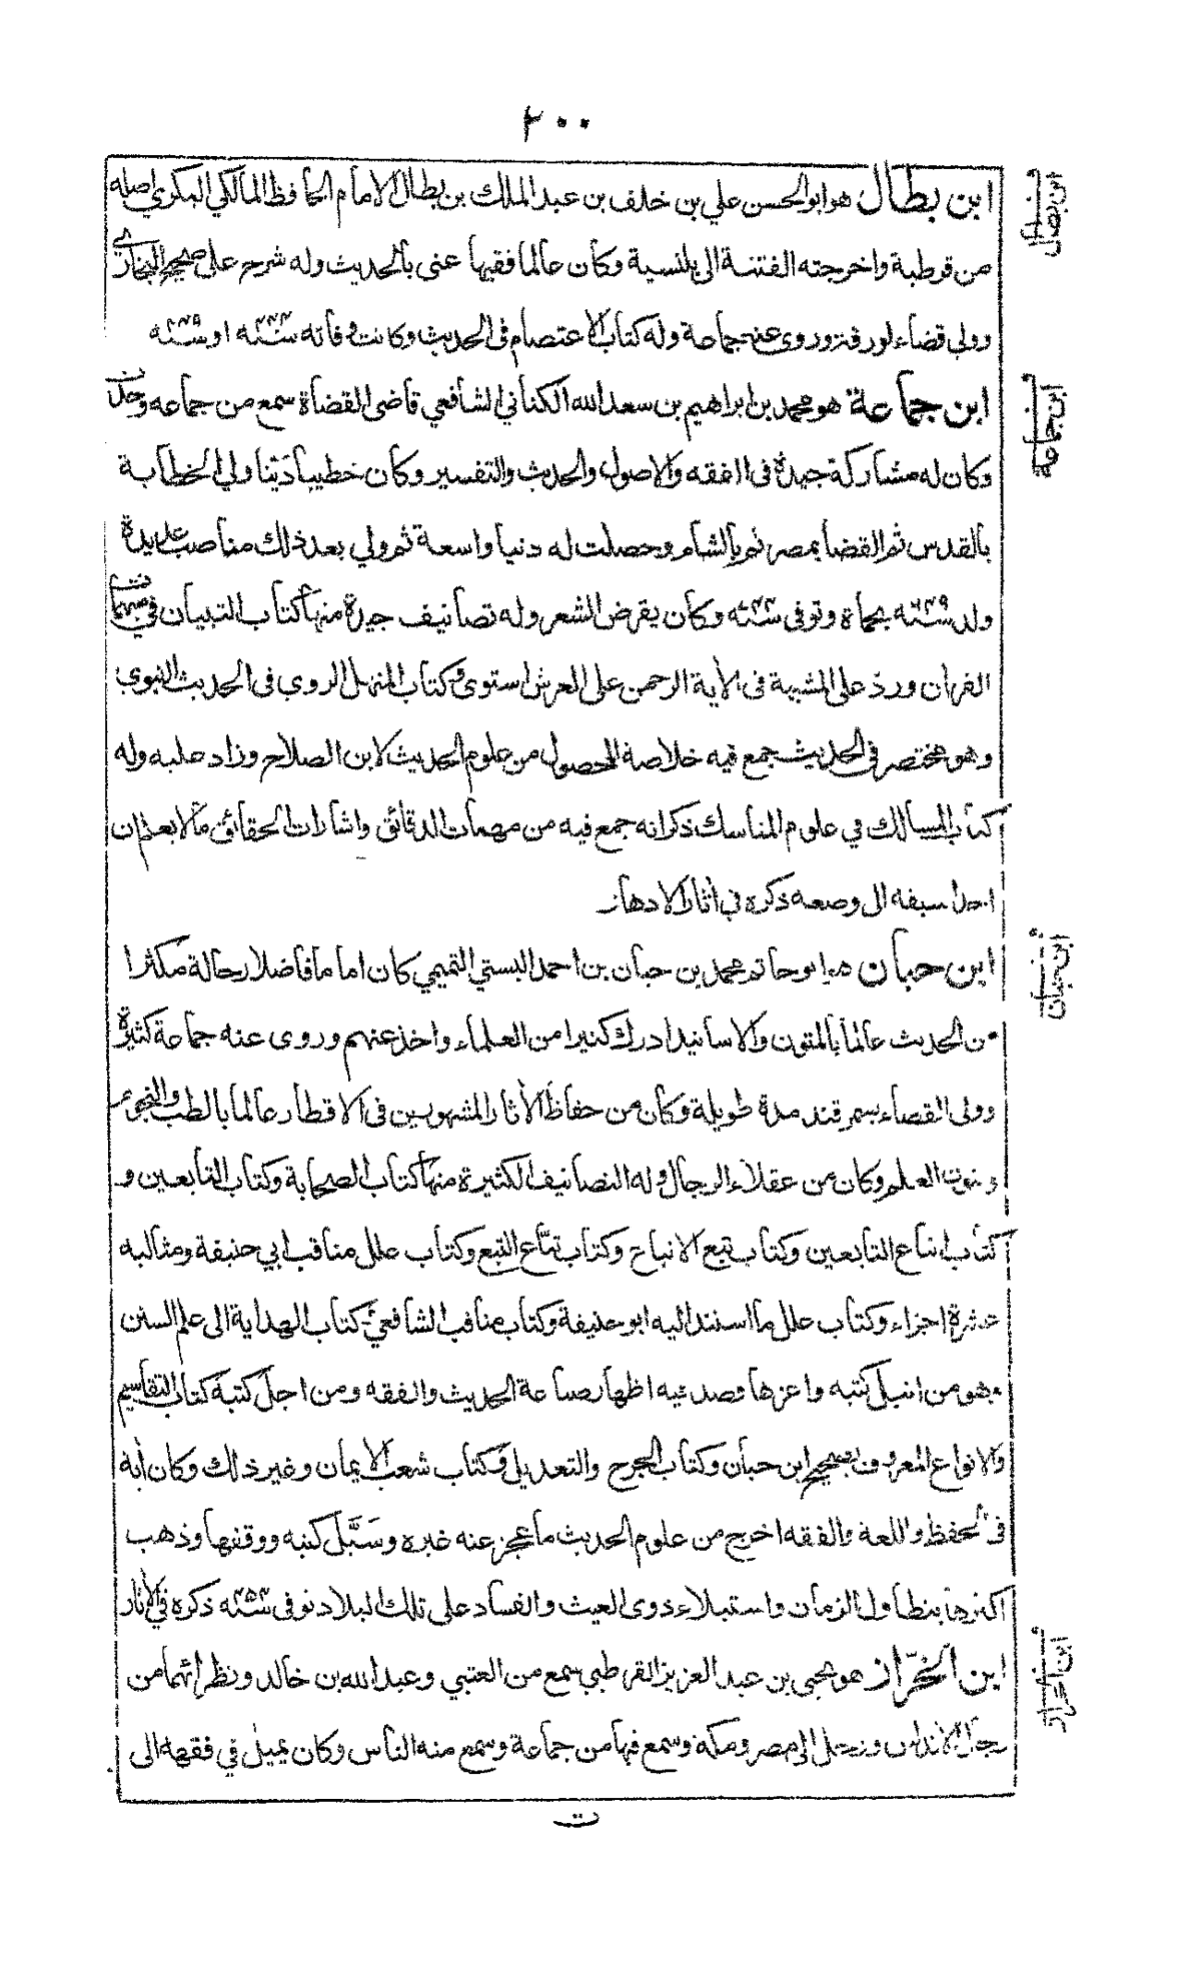 ٢٠٠
ابن بطال هو ابو الحسن علي بن خلف بن عبد الملك بن بطال الامام الحافظ المالكي البكري اصله
من قرطبة واخرجته الفتنة الى بلنسية وكان عالما فقيها عنى بالحديث وله شرح على صحيح البخاري
وولي قضاء لورقة وروى عنه جماعة وله كتاب الاعتصام في الحديث وكانت وفاته سنة او سنة
ابن جماعة هو محمد بن ابراهيم بن سعد الله الكناني الشافعي قاضى القضاة سمع من جماعه وحدث
وكان له مشاركة جيدة في الفقه والاصول والحديث والتفسير وكان خطيبا دَيّنا ولي الخطابة
بالقدس ثم القضا بمصر ثم بالشام وحصلت له دنيا واسعة ثم ولي بعد ذلك مناصب عديدة
ولد سنة ٦٣٩ بحماة وتوفى سنة ٧٣٣ وكان يقرض الشعر وله تصانيف جيدة منها كتاب التبيان في مبهمات
القران ورد على المشبهة في الاية الرحمن على العرش استوى وكتاب المنهل الروي في الحديث النبوي
وهو مختصر في الحديث جمع فيه خلاصة المحصول من علوم الحديث لابن الصلاح وزاد عليه وله
كتاب المسالك في علوم المناسك ذكر انه جمع فيه من مهمات الدقائق واشارات الحقائق مالا يعلم ان
احدا سبقه الى وضعه ذكره في اثار الادهار
ابن حبان هو ابو حاتم محمد بن حبان بن احمد البستي التميمي كان اماما فاضلا رحالة مكثرا
من الحديث عالما بالمتون والاسانيد ادرك كثيرا من العلماء واخذ عنهم وروى عنه جماعة كثيرة
وولى القضاء بسمرقند مدة طويلة وكان من حفاظ الاثار المشهورين في الاقطار عالما بالطب والنجوم
وفنون العلم وكان من عقلاء الرجال وله التصانيف الكثيرة منها كتاب الصحابة وكتاب التابعين و
كتاب اتباع التابعين وكتاب تبع الاتباع وكتاب تباع التبع وكتاب علل مناقب ابي حنيفة ومثالبه
عشرة اجزاء وكتاب علل ما استند اليه ابو حنيفة وكتاب مناقب الشافعي وكتاب الهداية الى علم السنن
وهو من انبل كتبه واعزها قصد فيه اظهار صناعة الحديث والفقه ومن اجل كتبه كتاب التقاسيم
والانواع المعروف بصحيح ابن حبان وكتاب الجرح والتعديل وكتاب شعب الايمان وغير ذلك وكان اية
في الحفظ واللغة والفقه اخرج من علوم الحديث ما عجز عنه غيره وسَبَّل كتبه ووقفها وذهب
اكثرها بتطاول الزمان واستيلاء ذوى العيث والفساد على تلك البلاد توفى سنة ٣٥٤ ذكره في الاثار
ابن الخرّاز هو يحيى بن عبد العزيز القرطبي سمع من العتبي وعبد الله بن خالد ونظرائهما من
رجال الاندلس ورحل الى مصر ومكة وسمع فيها من جماعة وسمع منه الناس وكان يميل في فقهه الى
ت
ابن بطال
ابن جماعة
ابن حبان
ابن الخراز